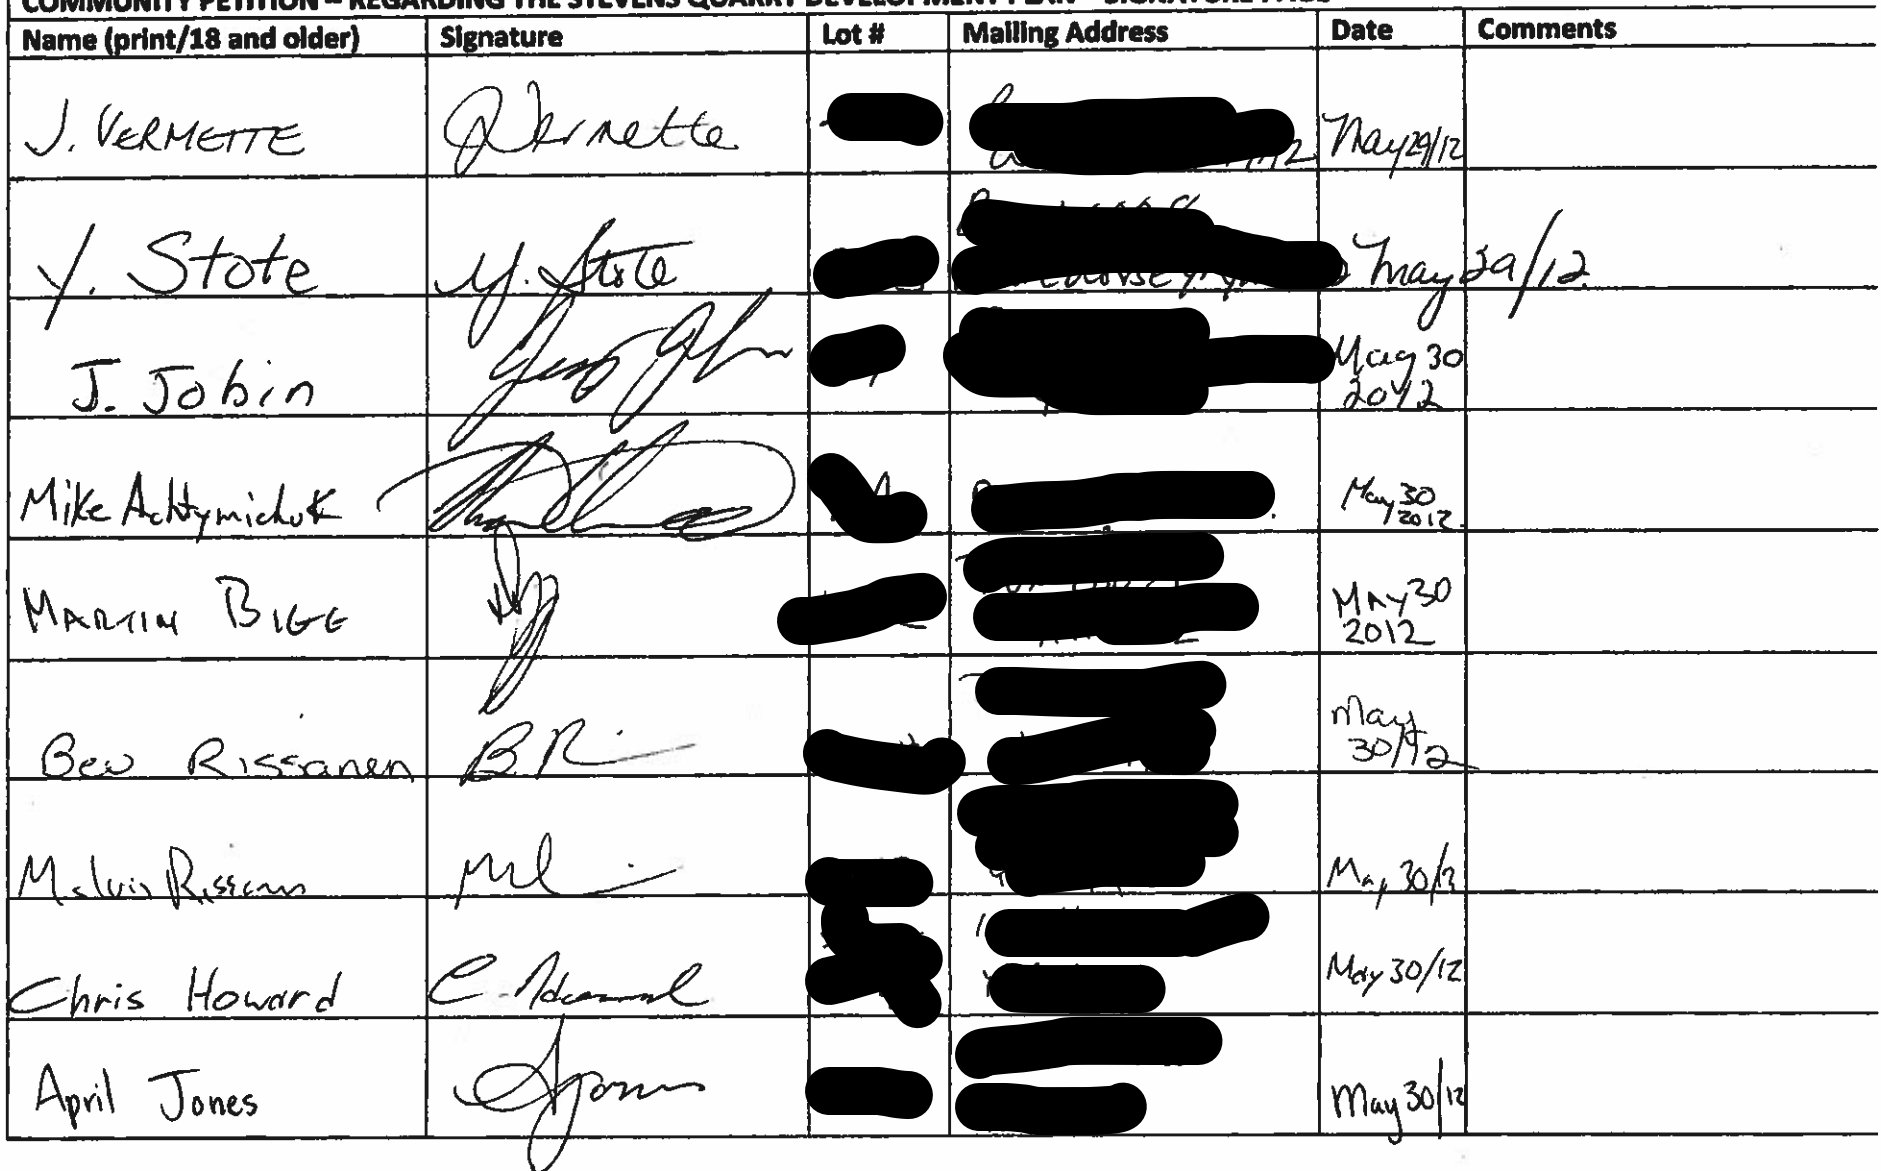 COMMUNITY PETITION – REGARDING THE STEVENS QUARRY DEVELOPMENT PLAN – SIGNATURE PAGE
Name (print/18 and older) Signature Lot # Mailing Address Date Comments
J. VERMETTE JVermette May 29/12
Y. Stote Y. Stote May 29/12
J. Jobin May 30 2012
Mike Achtymichuk May 30 2012
MARTIN BIGG MAY 30 2012
Bev Rissanen B. R May 30/12
Melvin Rissanen May 30/12
Chris Howard C. Howard May 30/12
April Jones AJones May 30/12